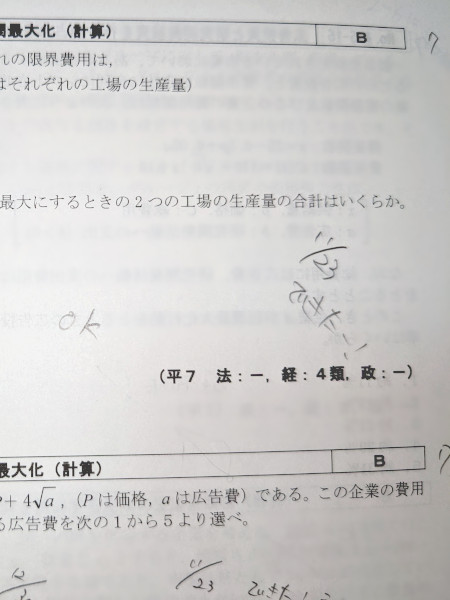 最大化（計算） B
れの限界費用は，
はそれぞれの工場の生産量）
最大にするときの２つの工場の生産量の合計はいくらか。
11/23
できた
OK
（平７　法：－，経：４類，政：－）
最大化（計算） B
P+4√a，（Pは価格，aは広告費）である。この企業の費用
る広告費を次の１から５より選べ。
11/23 できた